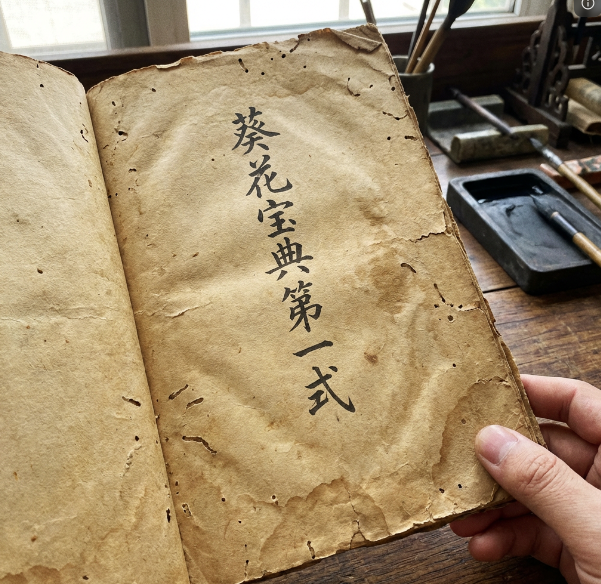 葵花宝典第一式